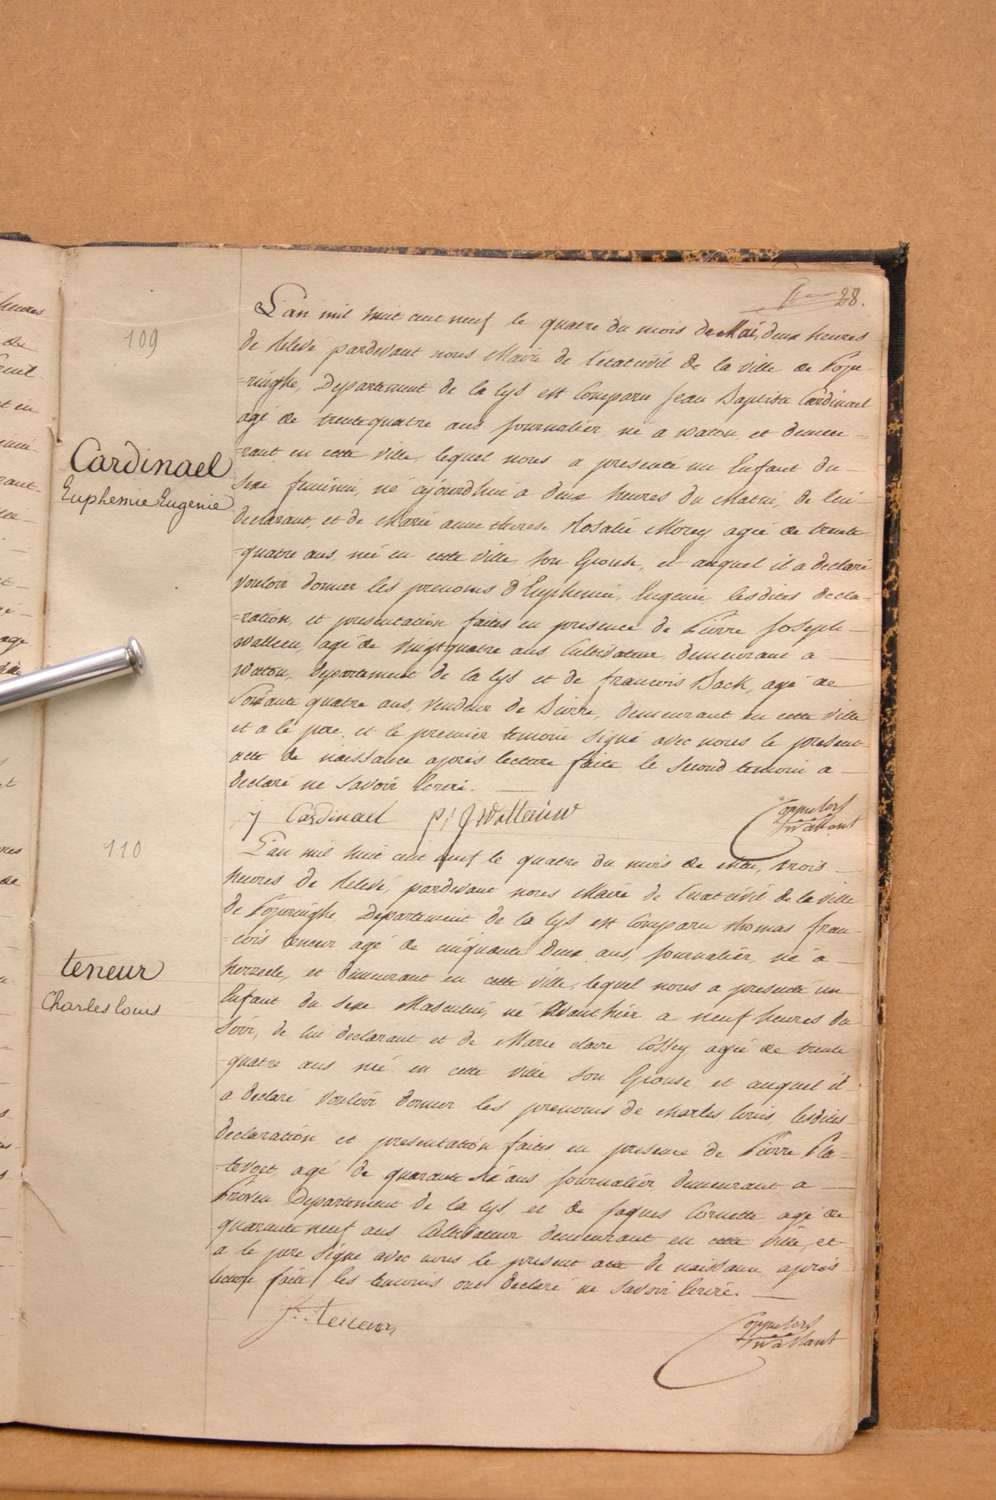 28.
109
L'an mil huit cent neuf le quatre du mois de Mai, deux heures
de Relevé pardevant nous Maire de l'état civil de la ville de Pope-
-ringhe, Departement de la Lys est Comparu Jean Baptiste Cardinael
agé de trente quatre ans journalier né a watou et demeu-
-rant en cette ville, lequel nous a presenté un Enfant du
Sexe feminin, né ajourdhui a deux heures du Matin, de lui
declarant, et de Marie anne therese Rosalie Morey agée de trente
-quatre ans née en cette ville Son Epouse, et auquel il a declaré
vouloir donner les prenoms d'Euphemie, Eugenie lesdites decla-
-ration, et presentation faites en presence de Pierre Joseph
Walleeu, agé de vingt quatre ans Cultivateur demeurant a
Watou, Departement de la Lys et de francois Back, agé de
Soixante quatre ans, vendeur de Bierre, demeurant en cette ville
et a le pere, et le premier temoin signé avec nous le present
acte de naissance après lecture faite le second temoin a
declaré ne savoir Ecrire.
Cardinael
Euphemie Eugenie
j Cardinael p: j Walleuw
110
L'an mil huit cent neuf le quatre du mois de Mai, trois
heures de Relevé, pardevant nous Maire de l'etat civil de la ville
de Poperinghe Departement de la Lys est Comparu thomas fran-
-cois teneur agé de cinquante deux ans, journalier né a
herzeele, et demeurant en cette ville, lequel nous a presenté un
Enfant du sexe Masculin, né avant hier a neuf heures du
Soir, de lui declarant et de Marie claire Cossey agée de trente
-quatre ans née en cette ville son Epouse et auquel il
a declaré vouloir donner les prenoms de charles louis, lesdites
declaration et presentation faites en presence de Pierre Pla-
-tevoet, agé de quarante Six ans journalier demeurant a
Proven Departement de la Lys et de Jaques Cornette agé de
quarante neuf ans Cultivateur demeurant en cette ville, et
a le pere signé avec nous le present acte de naissance après
lecture faite les temoins ont declaré ne savoir Ecrire.
teneur
Charles louis
teneur